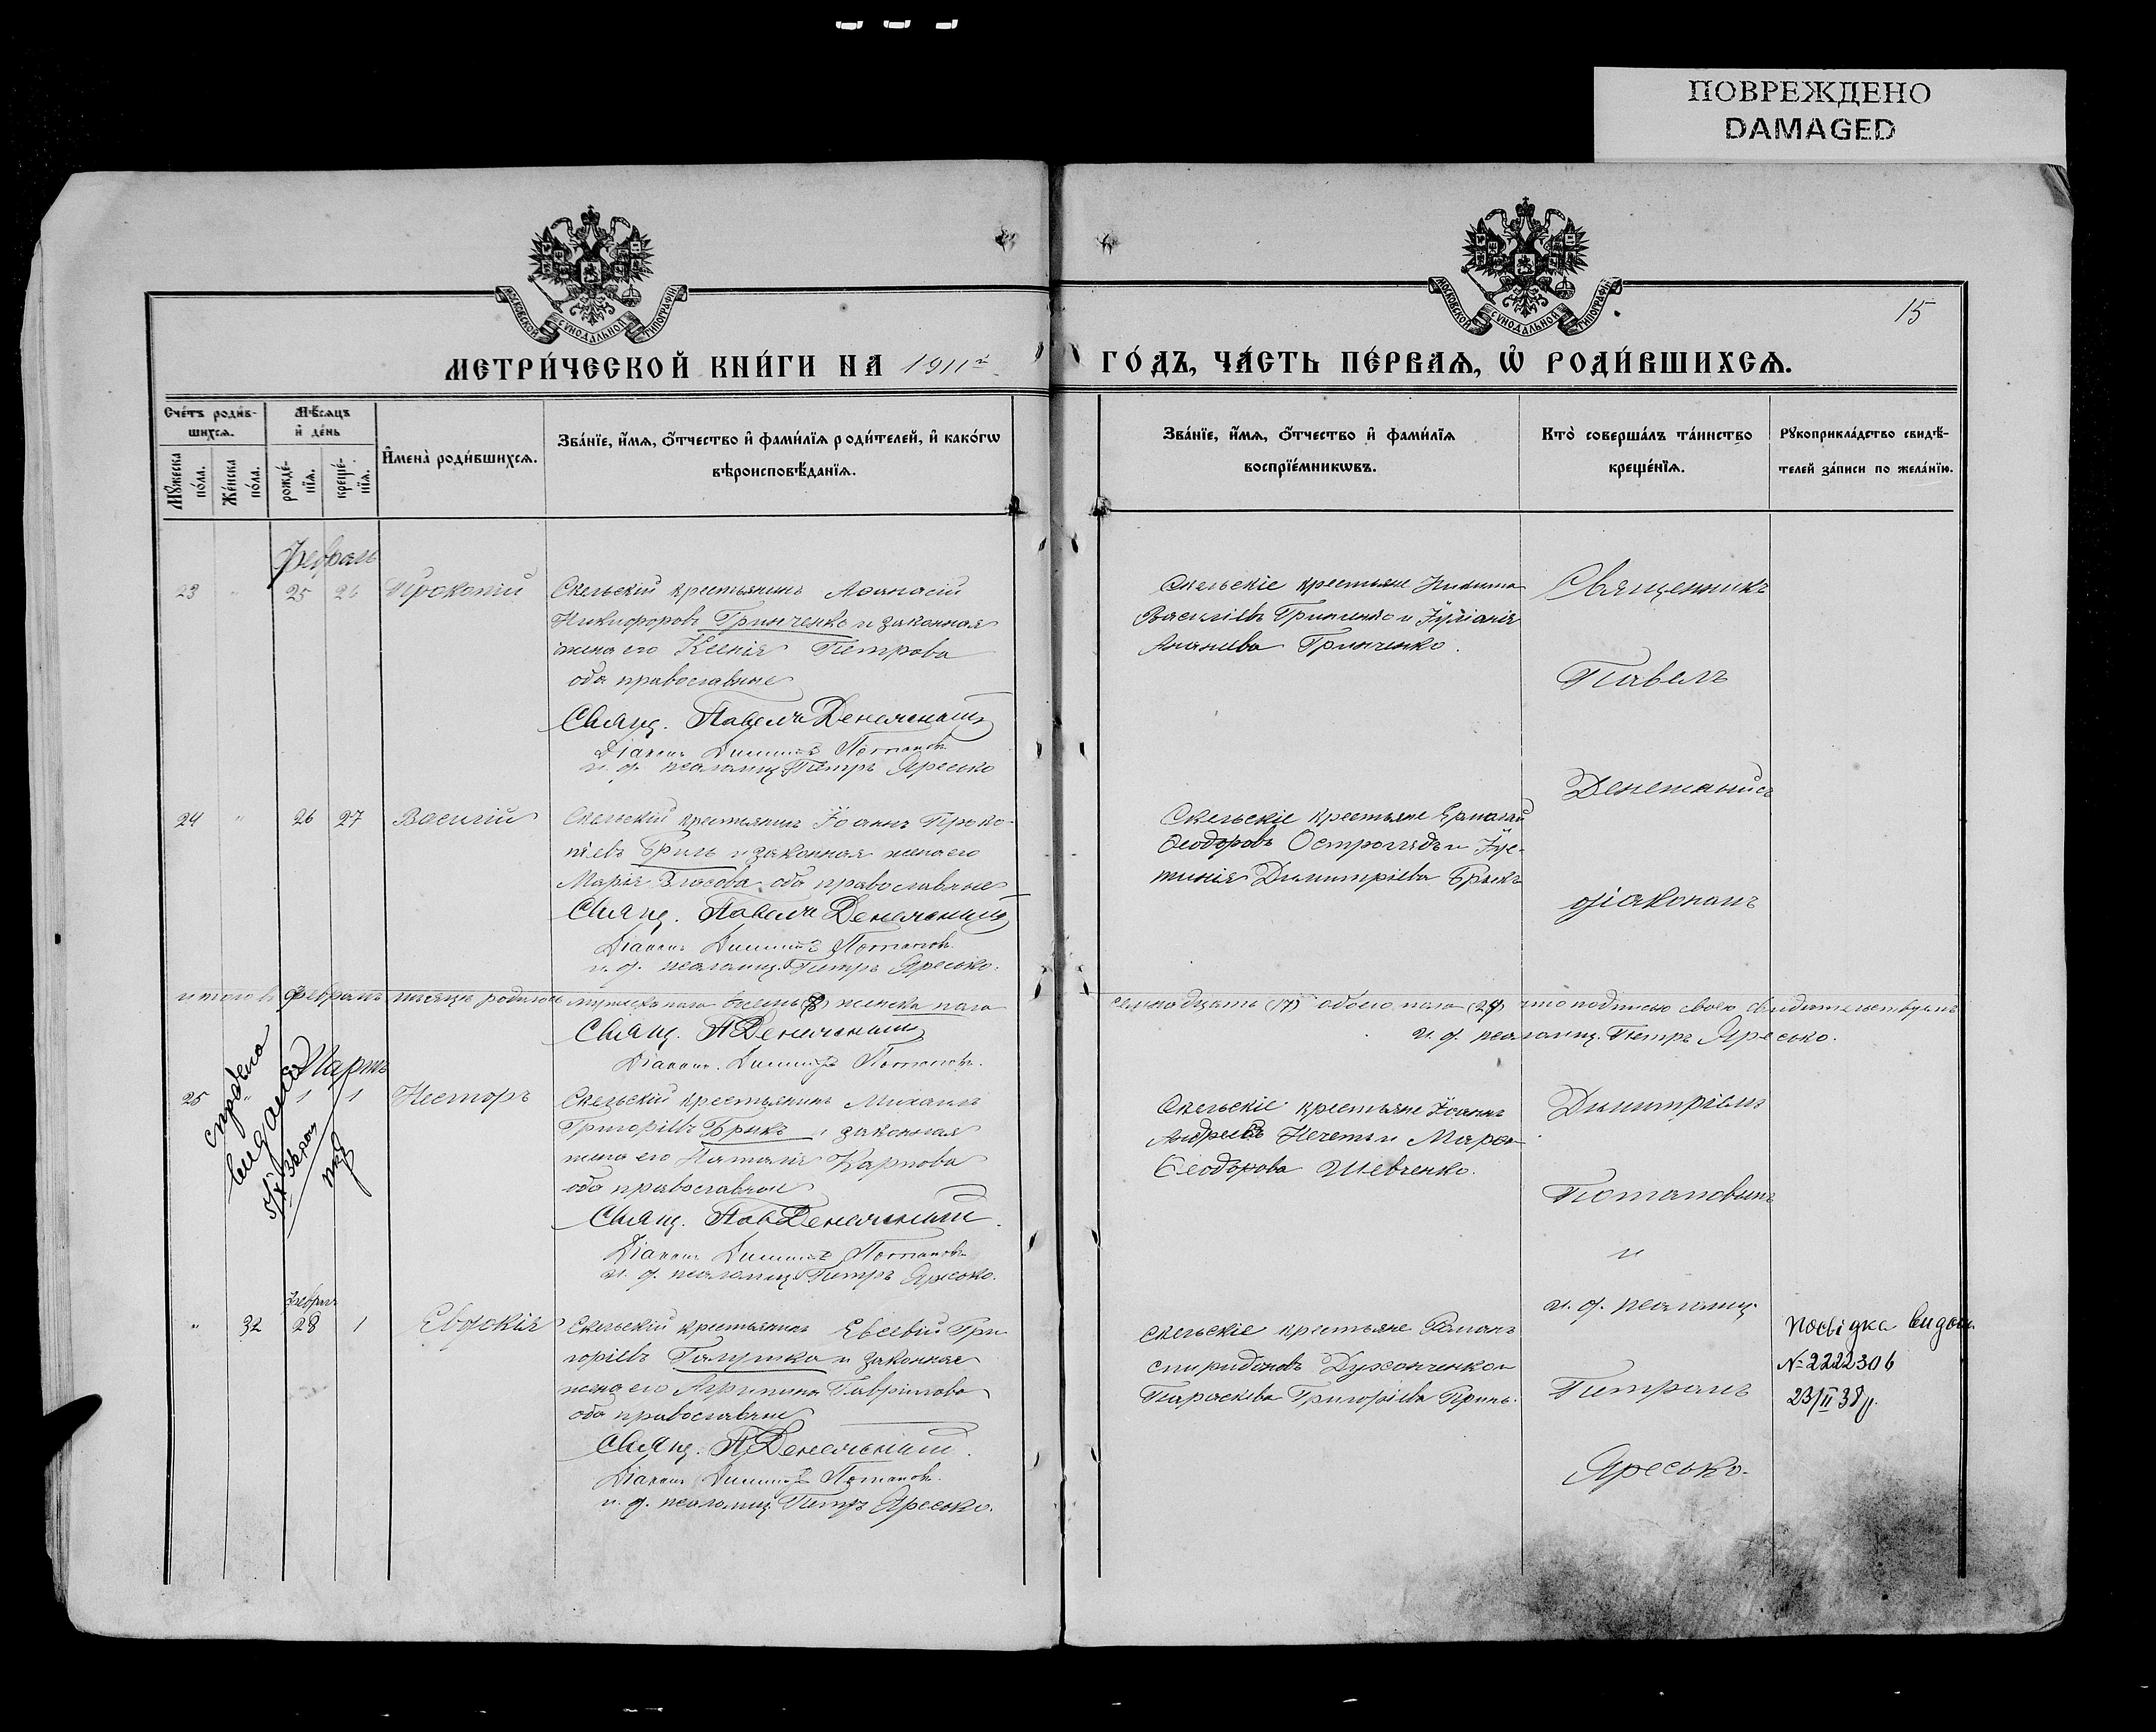 ПОВРЕЖДЕНО
DAMAGED
МОСКОВСКОЙ СѴНОДАЛЬНОЙ ТИПОГРАФІИ
МОСКОВСКОЙ СѴНОДАЛЬНОЙ ТИПОГРАФІИ
15
МЕТРИ́ЧЕСКОЙ КНИ́ГИ НА 1911 г.
ГО́ДЪ, ЧА́СТЬ ПЕ́РВАѦ, Ѡ҆ РОДИ́ВШИХСѦ.
Сче́тъ роди́в-
шихсѧ.
Мѣ́сѧцъ
и҆ де́нь
Мꙋ́жеска
по́ла.
Же́нска
по́ла.
рожде́-
нїѧ.
креще́-
нїѧ.
И҆мена̀ роди́вшихсѧ.
Зва́нїе, и҆́мѧ, ѻ҆́тчество и҆ фами́лїѧ роди́телей, и҆ како́гѡ
вѣроисповѣ́данїѧ.
Зва́нїе, и҆́мѧ, ѻ҆́тчество и҆ фами́лїѧ
воспрїе́мникѡвъ.
Кто̀ соверша́лъ та́инство
креще́нїѧ.
Рꙋкоприкла́дство свидѣ́-
телей за́писи по жела́нїю.
Февраль
23 " 25 26 Прокопій
Скельскій крестьянинъ Аѳанасій
Никифоровъ Гринченко и законная
жена его Ксенія Петрова
оба православные
Свящ. Павелъ
Діаконъ Димитрій Потаповъ
и. д. псаломщ. Петръ Яресько
Скельскіе крестьяне Никита
Васильевъ Гринченко и Іуліанія
Ананіева Гринченко.
Священникъ
Павелъ
24 " 26 27 Василій
Скельскій крестьянинъ Іоаннъ Проко-
піевъ Гриль и законная жена его
Марія Власова, оба православные
Свящ. Павелъ
Діаконъ Димитрій Потаповъ.
и. д. псаломщ. Петръ Яресько.
Скельскіе крестьяне Ермолай
Ѳеодоровъ Остроглядъ и Іус-
тинія Димитріева Брикъ
діакономъ
итого въ Февралѣ мѣсяцѣ родилось мужеска пола восемь (8) женска пола
семнадцать (17) обоего пола (24) что подписью своею свидѣтельствуемъ
Свящ. П.
Діаконъ Димитрій Потаповъ.
и. д. псаломщ. Петръ Яресько.
Мартъ
25 " 1 1 Несторъ
Скельскій крестьянинъ Михаилъ
Григорьевъ Брикъ и законная
жена его Наталія Карпова
оба православные
Свящ. Пав.
Діаконъ Димитрій Потаповъ
и. д. псаломщ. Петръ Яресько.
Скельскіе крестьяне Іоаннъ
Андреевъ и Марѳа
Ѳеодорова Шевченко.
Димитріемъ
Потаповымъ
и
и. д. псаломщ.
Феврал
" 32 28 1 Евдокія
Скельскій крестьянинъ Евсевій Гри-
горіевъ Галушка и законная
жена его Агрипина Гавріилова
оба православные
Свящ. П.
Діаконъ Димитрій Потаповъ.
и. д. псаломщ. Петръ Яресько.
скельскіе крестьяне Романъ
Спиридоновъ и
Параскева Григорьева Гриль.
Петромъ
Яресько.
Посвідка видан.
№ 2222306
23/II 38 р.